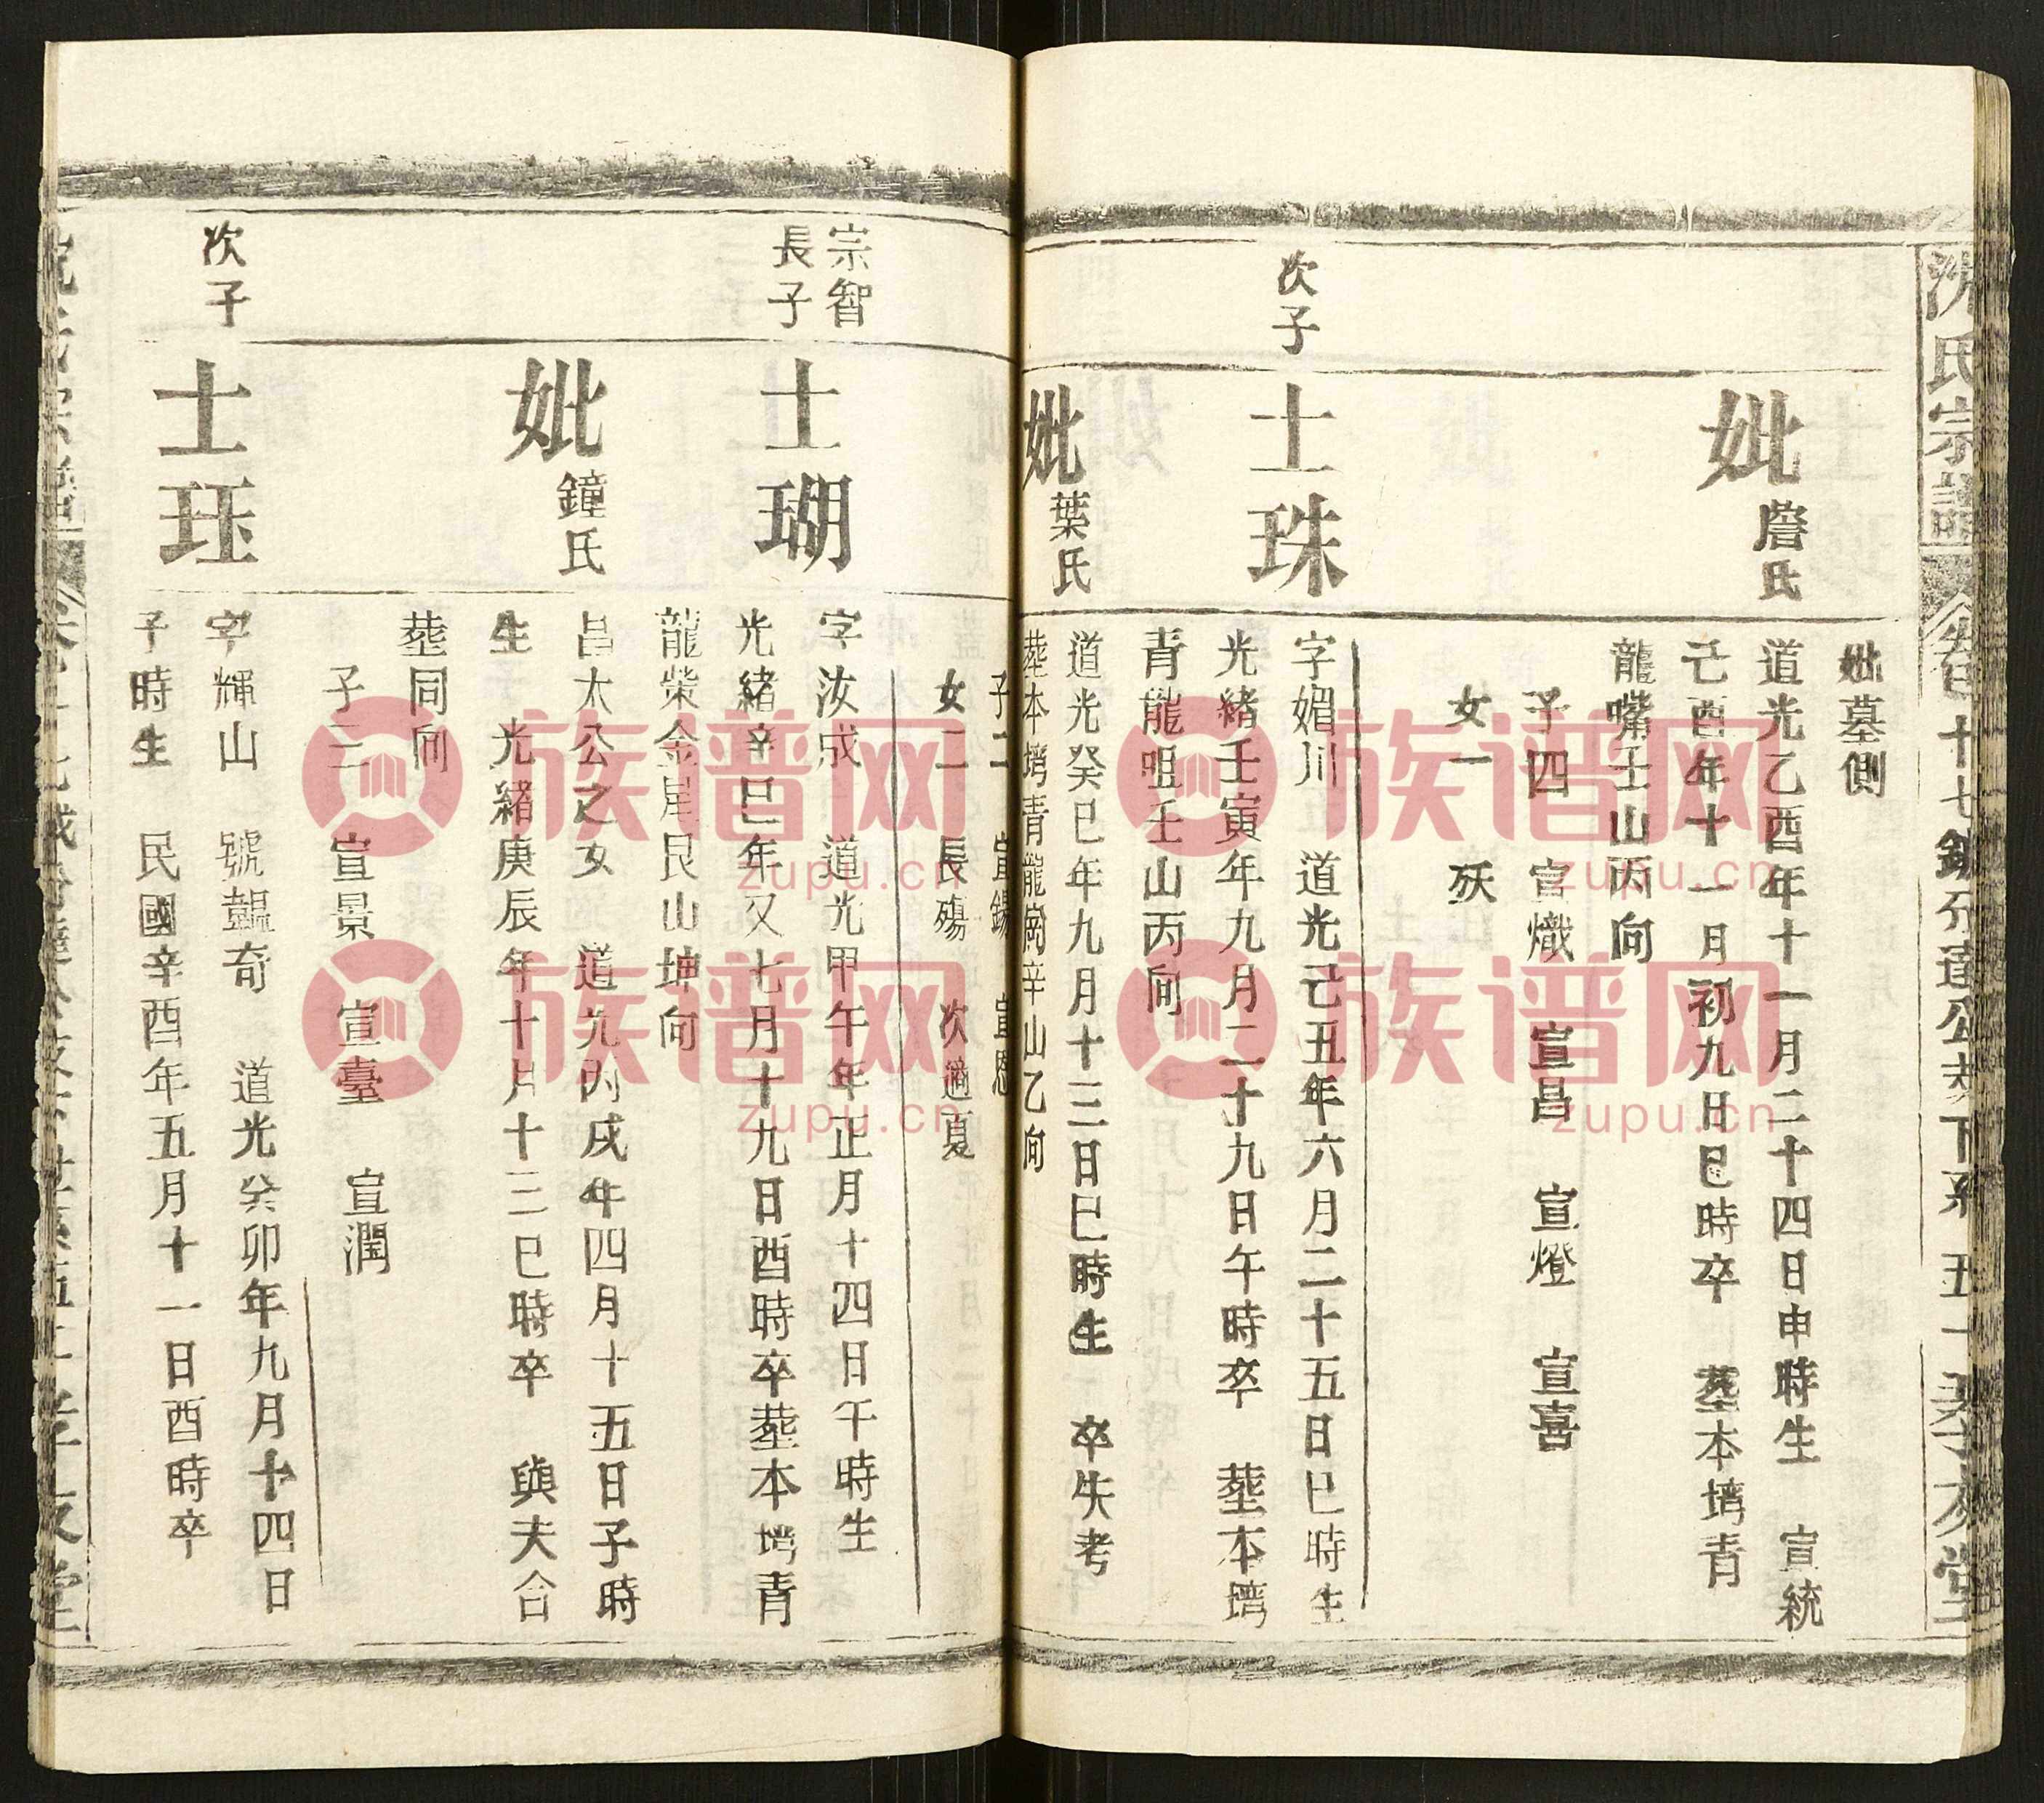 沈氏宗譜
卷十七
分達公
下系
五十
孝友堂
妣墓側
妣
詹氏
道光乙酉年十一月二十四日申時生 宣統
己酉年十一月初九日巳時卒 塟本塆青
龍嘴壬山丙向
子四 宣熾 宣昌 宣燈 宣喜
女一 殀
次子
士珠
字媚川 道光己丑年六月二十五日巳時生
光緒壬寅年九月二十九日午時卒 塟本塆
青龍咀壬山丙向
妣
葉氏
道光癸巳年九月十三日巳時生 卒失考
塟本塆青龍崗辛山乙向
子二 宣錫 宣恩
女二 長殤 次適夏
宗智
長子
士瑚
字汝成 道光甲午年正月十四日午時生
光緒辛巳年又七月十九日酉時卒塟本塆青
龍柴金星艮山坤向
妣
鐘氏
昌太公之女 道光丙戌年四月十五日子時
生 光緒庚辰年十月十三巳時卒 與夫合
塟同向
子三 宣景 宣臺 宣潤
次子
士珏
字輝山 號韞奇 道光癸卯年九月十四日
子時生 民國辛酉年五月十一日酉時卒
族谱网
zupu.cn
族谱网
zupu.cn
族谱网
zupu.cn
族谱网
zupu.cn